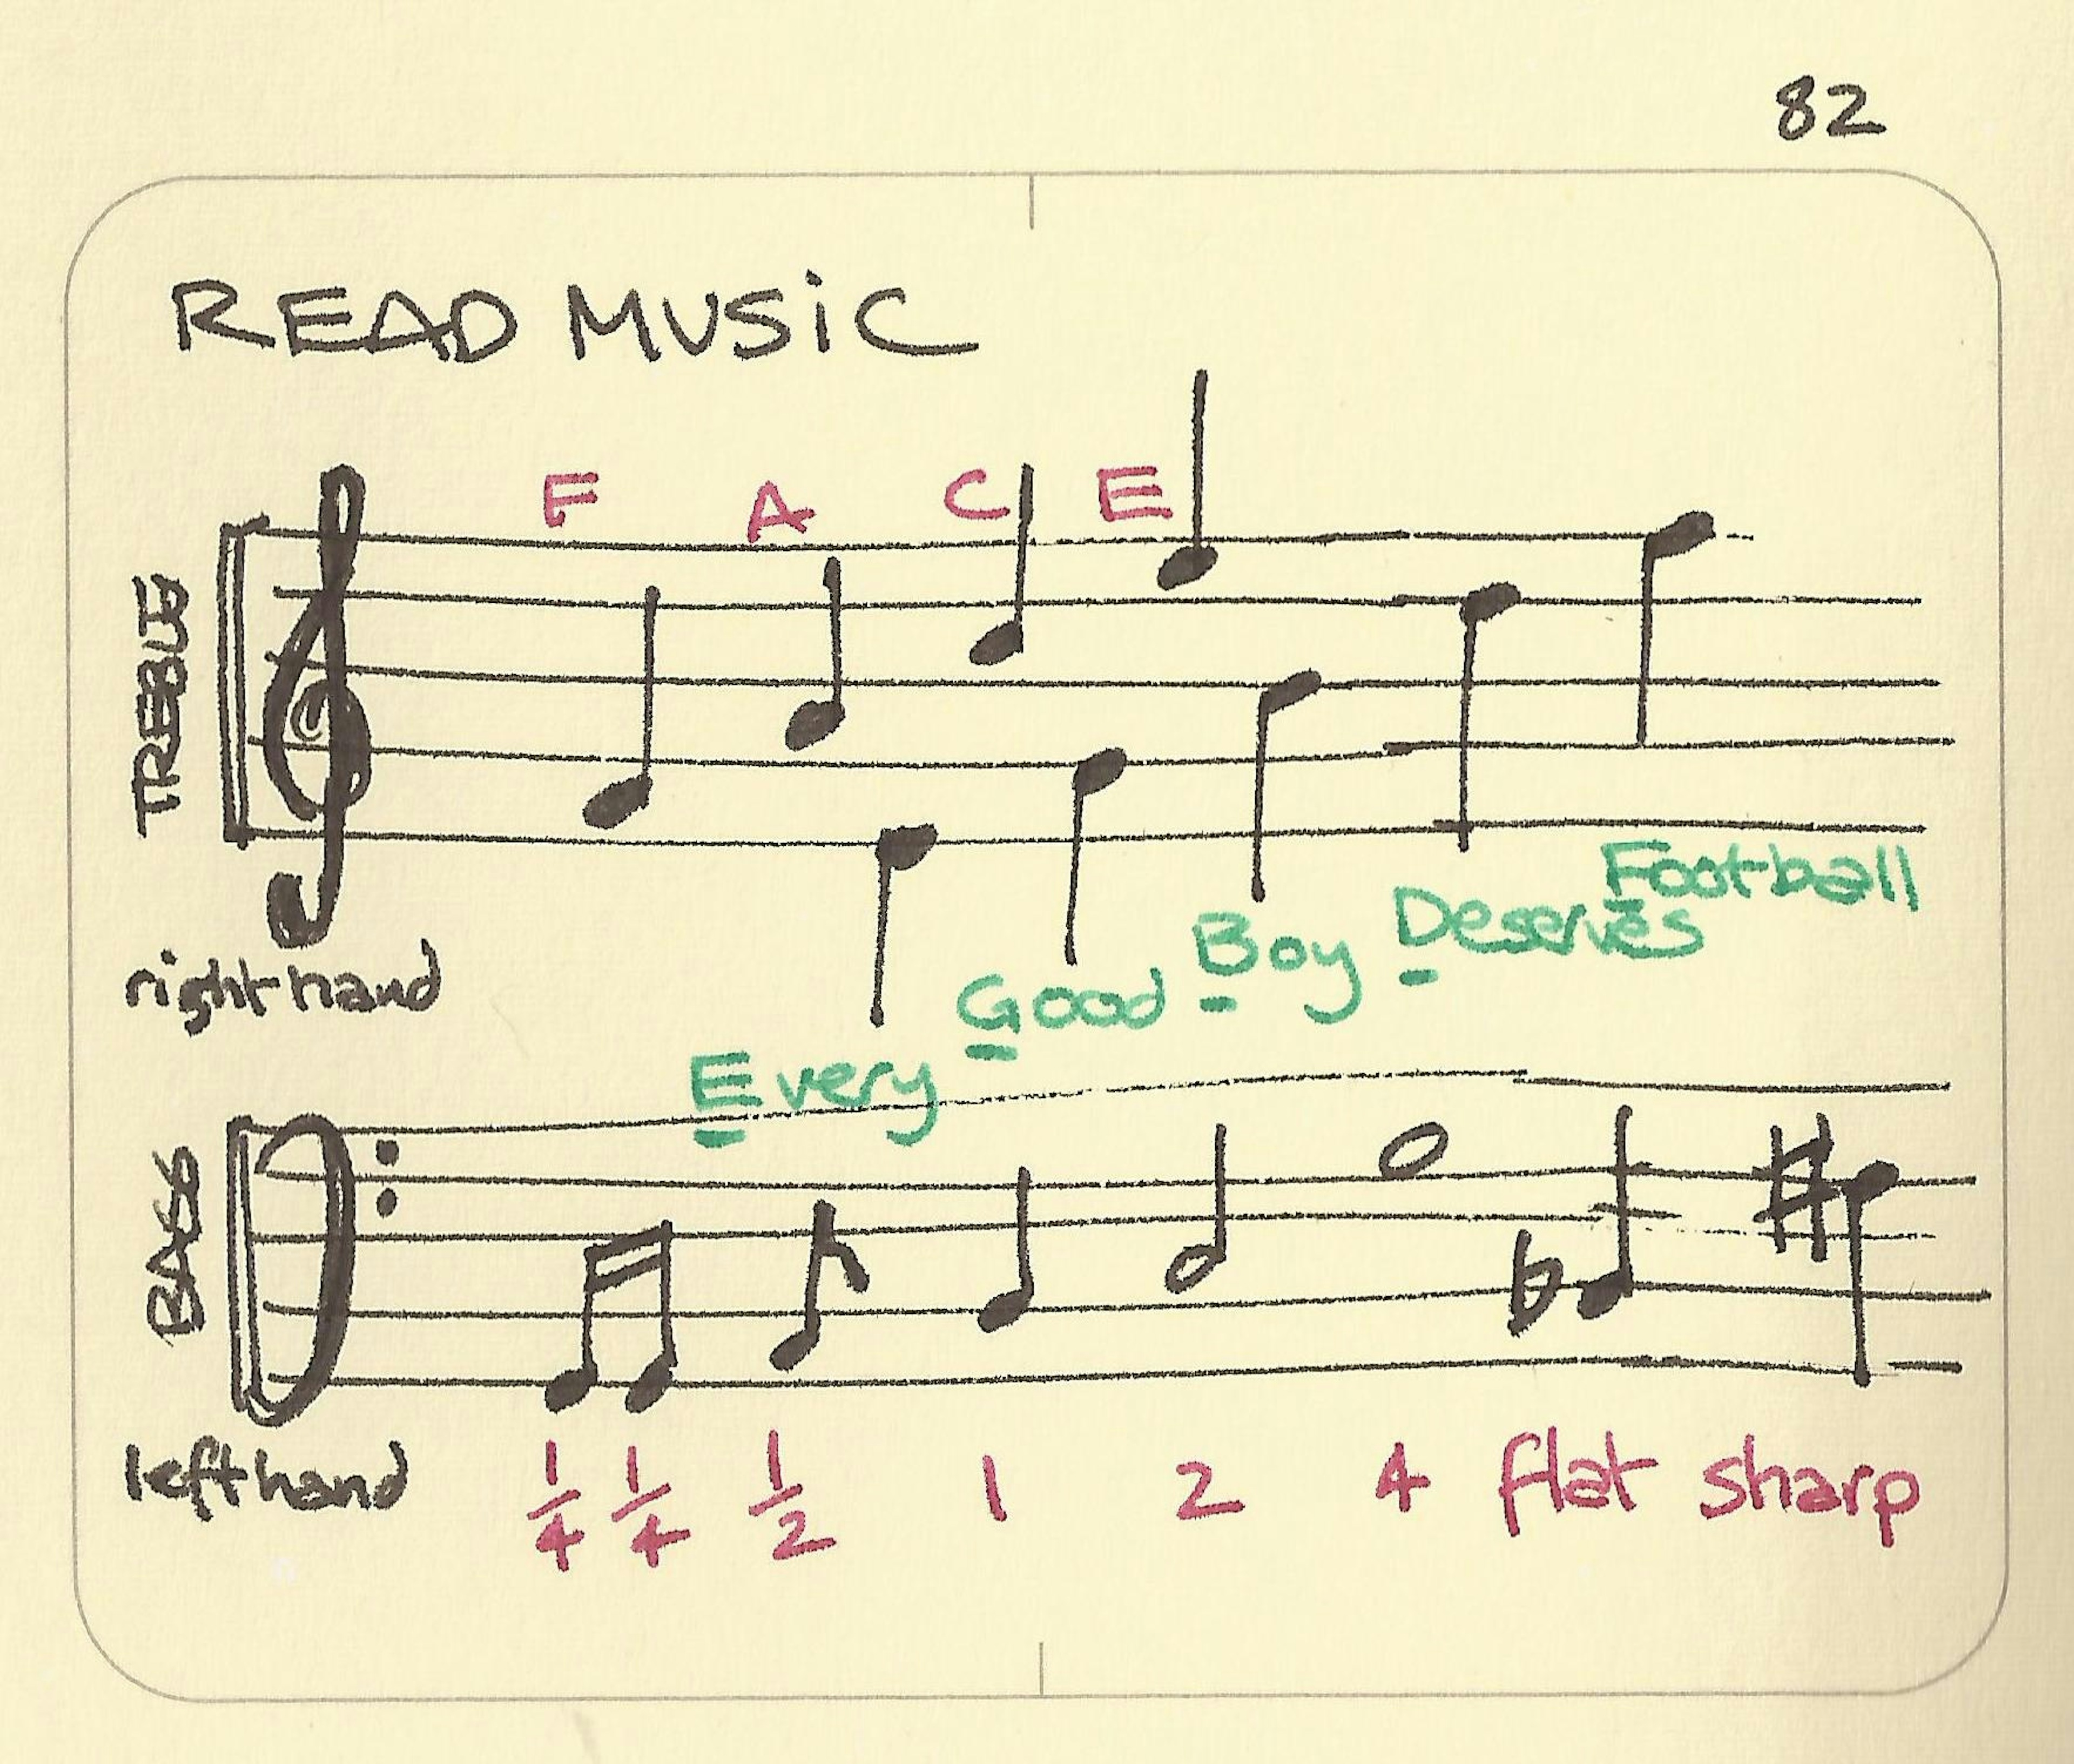 82
READ MUSiC
TREBLE
F A C E
right hand
Every Good Boy Deserves Football
BASS
left hand
1/4 1/4 1/2 1 2 4 flat sharp